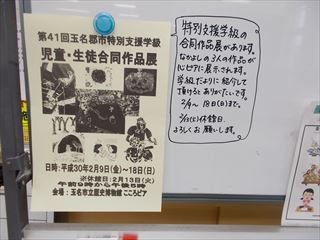 第41回玉名郡市特別支援学級
児童・生徒合同作品展
日時：平成30年2月9日(金)～18日(日)
※休館日：2月13日(火)
午前9時から午後5時
会場：玉名市立歴史博物館 こころピア
特別支援学級の
合同作品展があります。
なかよしの3人の作品が
心ピアに展示されます。
学級だよりに紹介して
頂けるとありがたいです。
2/9～18(日)まで。
よろしくお願いします。